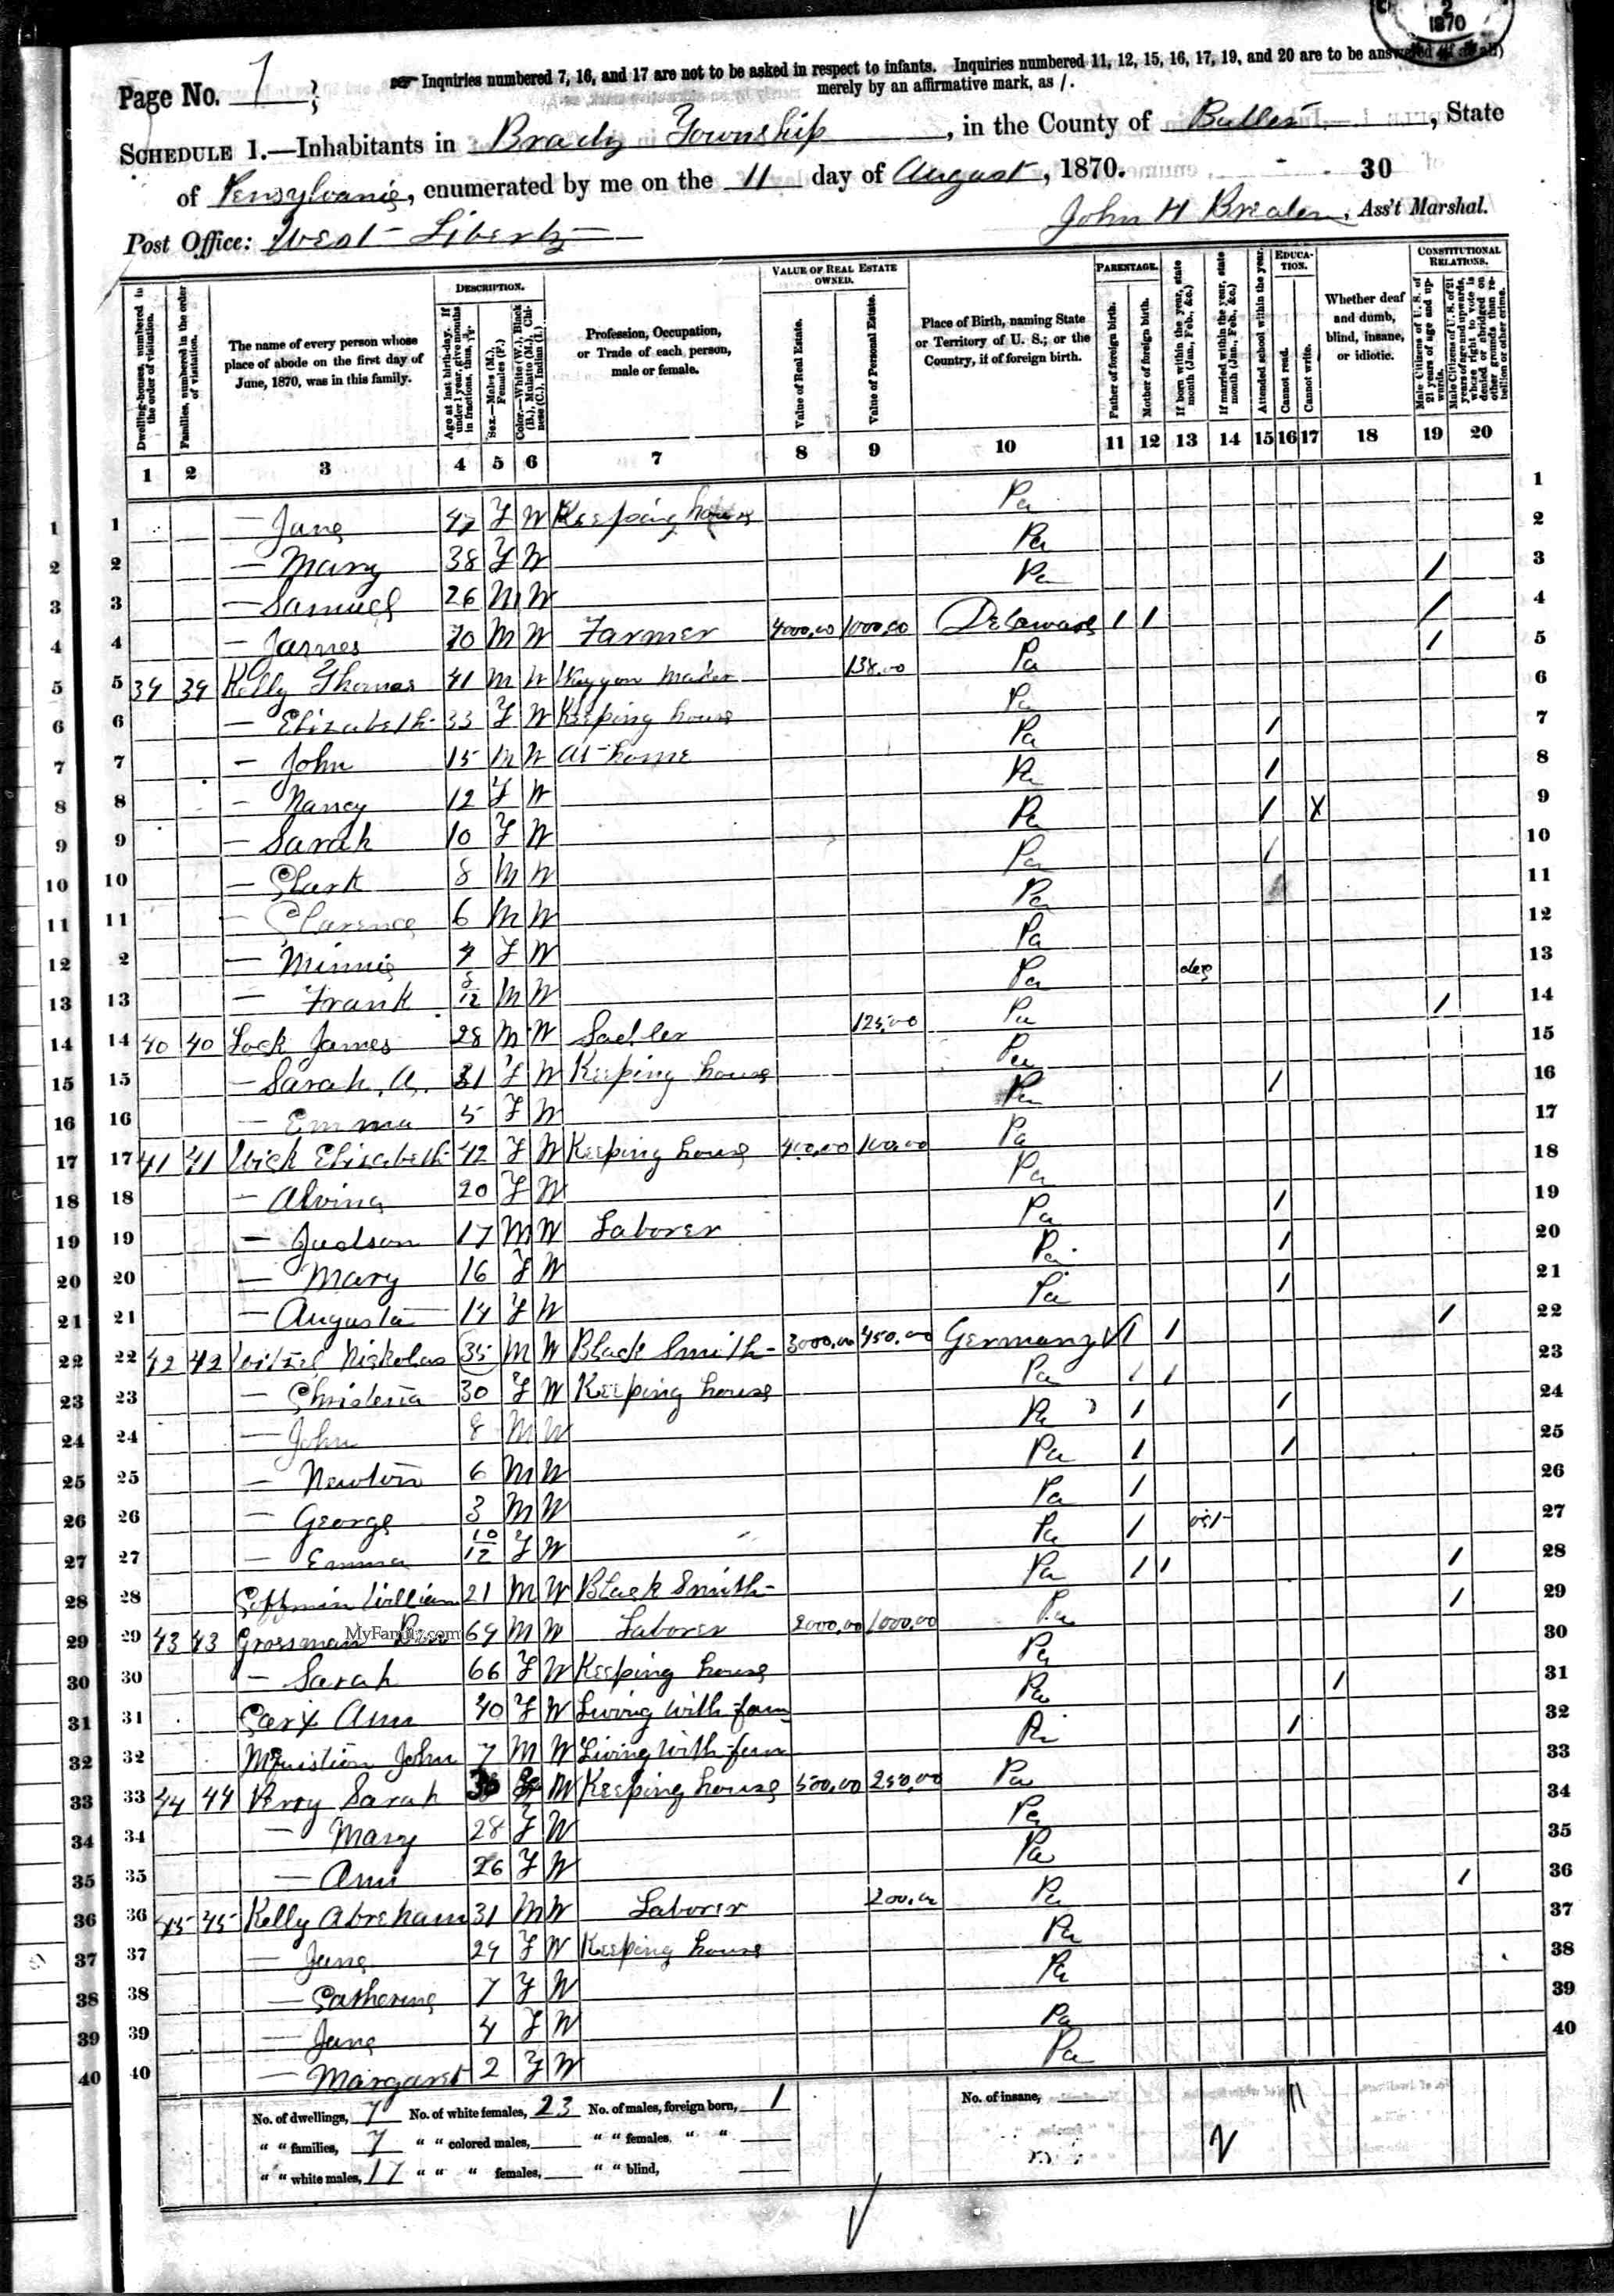 2
1870
Page No. 7
Inquiries numbered 7, 16, and 17 are not to be asked in respect to infants. Inquiries numbered 11, 12, 15, 16, 17, 19, and 20 are to be answered (if at all)
merely by an affirmative mark, as /.
SCHEDULE 1.—Inhabitants in Brady Township, in the County of Butler, State
of Pensylvania, enumerated by me on the 11 day of August, 1870. 30
Post Office: West Liberty John H, Ass't Marshal.
Dwelling-houses, numbered in the order of visitation.
Families, numbered in the order of visitation.
The name of every person whose place of abode on the first day of June, 1870, was in this family.
DESCRIPTION.
Age at last birth-day. If under 1 year, give months in fractions, thus,
Sex.—Males (M.), Females (F.)
Color.—White (W.), Black (B.), Mulatto (M.), Chinese (C.), Indian (I.)
Profession, Occupation, or Trade of each person, male or female.
VALUE OF REAL ESTATE OWNED.
Value of Real Estate.
Value of Personal Estate.
Place of Birth, naming State or Territory of U. S.; or the Country, if of foreign birth.
PARENTAGE.
Father of foreign birth.
Mother of foreign birth.
If born within the year, state month (Jan., Feb., &c.)
If married within the year, state month (Jan., Feb., &c.)
Attended school within the year.
EDUCATION.
Cannot read.
Cannot write.
Whether deaf and dumb, blind, insane, or idiotic.
CONSTITUTIONAL RELATIONS.
Male Citizens of U. S. of 21 years of age and upwards.
Male Citizens of U. S. of 21 years of age and upwards, whose right to vote is denied or abridged on other grounds than rebellion or other crime.
1 2 3 4 5 6 7 8 9 10 11 12 13 14 15 16 17 18 19 20
1 — Jane 47 F W Keeping house Pa
2 — Mary 38 F W Pa
3 — Samuel 26 M W Pa /
4 — James 70 M W Farmer 4000,00 1000,00 Delaware / / /
5 39 39 Kelly Thomas 41 M W Waggon Maker 138,00 Pa /
6 — Elizabeth 33 F W Keeping house Pa
7 — John 15 M W At home Pa /
8 — Nancy 12 F W Pa /
9 — Sarah 10 F W Pa / X
10 — Clark 8 M W Pa /
11 — Clarence 6 M W Pa
12 — Minnie 4 F W Pa
13 — Frank 8/12 M W Pa
14 40 40 Lock James 28 M W Sadler 125,00 Pa /
15 — Sarah, A. 31 F W Keeping house Pa
16 — Emma 5 F W Pa /
17 41 41 Wick Elizabeth 42 F W Keeping house 400,00 100,00 Pa
18 — Alvina 20 F W Pa
19 — Judson 17 M W Laborer Pa /
20 — Mary 16 F W Pa /
21 — Augusta 14 F W Pa /
22 42 42 Nickolas 35 M W Black Smith 3000,00 450,00 Germany / / /
23 — 30 F W Keeping house Pa / /
24 — John 8 M W Pa / /
25 — Newton 6 M W Pa / /
26 — George 3 M W Pa /
27 — Emma 10/12 F W Pa /
28 William 21 M W Black Smith Pa / / /
29 43 43 Grossman 69 M W Laborer 2000,00 1000,00 Pa /
MyFamily.com
30 — Sarah 66 F W Keeping house Pa
31 Ann 40 F W Living with fam Pa /
32 John 7 M W Living with fam Pa /
33 44 44 Perry Sarah F W Keeping house 500,00 250,00 Pa
34 — Mary 28 F W Pa
35 — Ann 26 F W Pa
36 45 45 Kelly Abreham 31 M W Laborer 200,00 Pa /
37 — Jane 29 F W Keeping house Pa
38 — Catherine 7 F W Pa
39 — Jane 4 F W Pa
40 — Margaret 2 F W Pa
No. of dwellings, 7 No. of white females, 23 No. of males, foreign born, 1 No. of insane,
" " families, 7 " " colored males, " " females, " "
" " white males, 17 " " " females, " " blind,